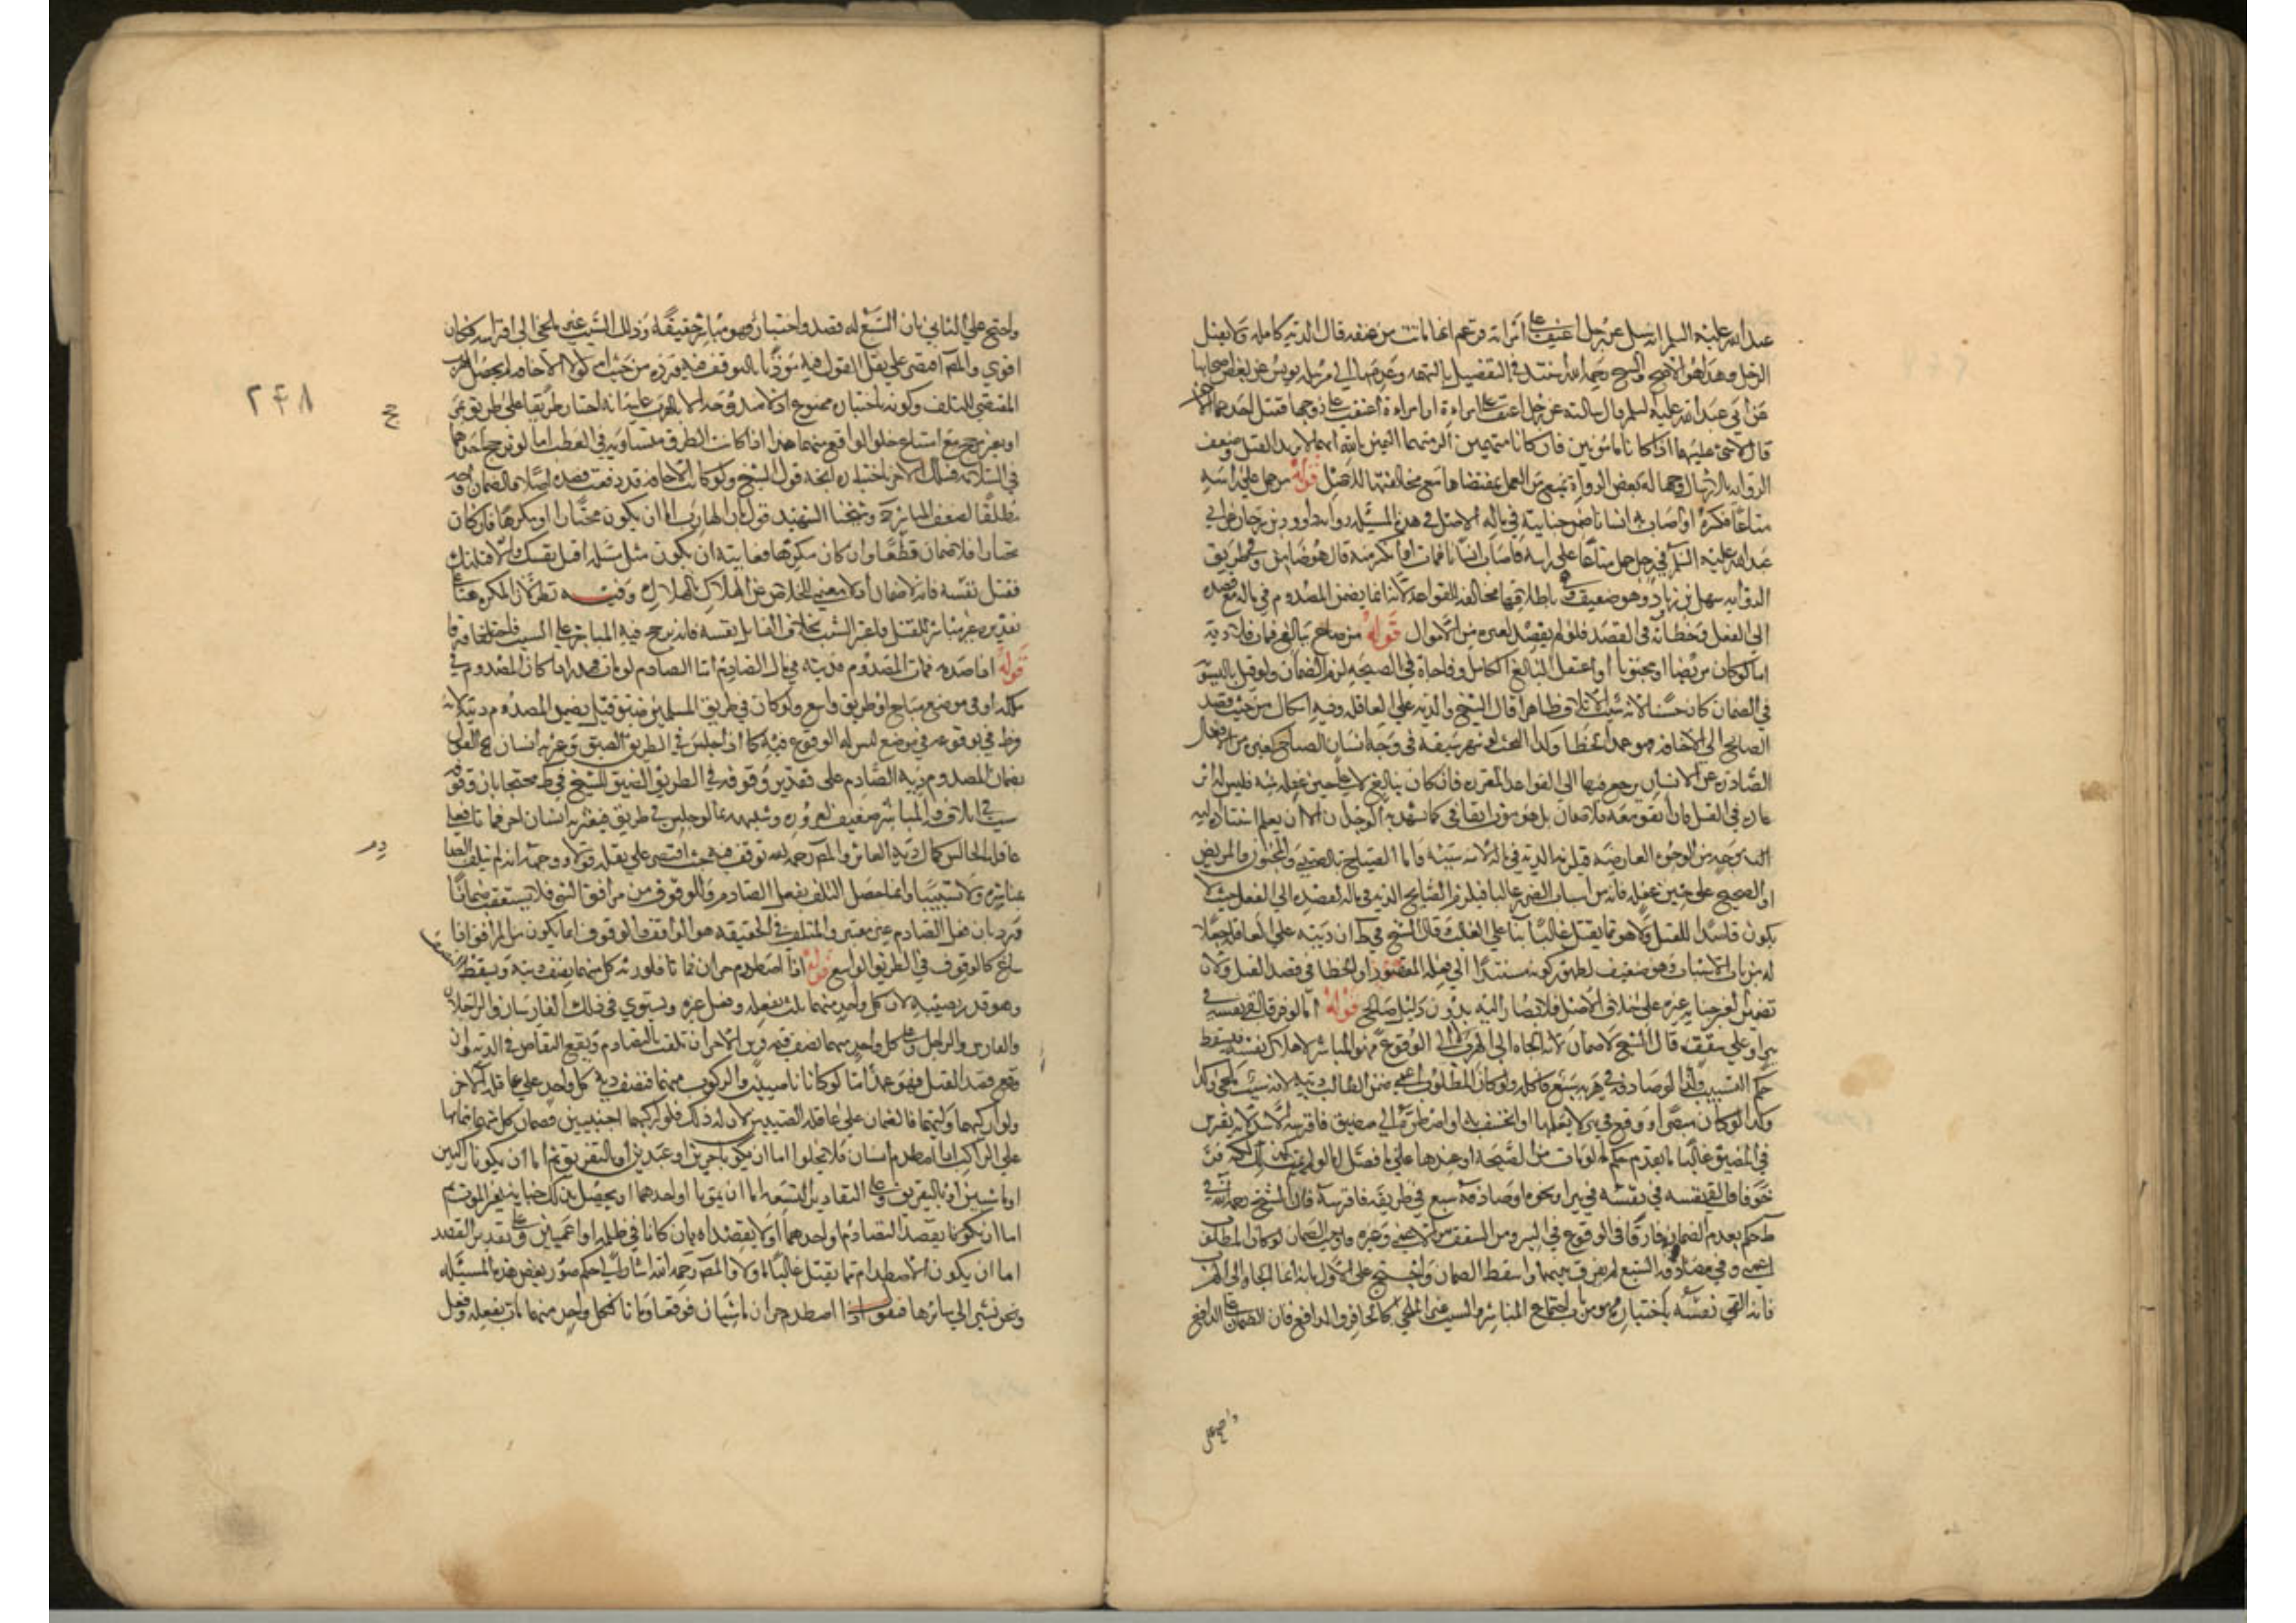 عبد الله عليه السلم انه سئل عن رجل اعنف على امراته فزعم انها ماتت من عنفه قال الدية كامله ولا يقتل
الرجل وهذا هو الاصح والشيخ رحمه الله استند في التفصيل بالتهمه وعدمها الى مرسله يونس عن بعض اصحابنا
عن ابي عبد الله عليه السلم قال سالته عن رجل اعنف على امراة او امراة اعنفت على زوجها فقتل احدهما الاخر
قال لا شئ عليهما اذا كانا مامونين فان كانا متهمين الزمتهما اليمين بالله انهما لم يريدا القتل وضعف
الروايه بالارسال وجهاله بعض الرواة يمنع من العمل بمقتضاها مع مخالفتها للاصل قوله من حمل على راسه
متاعا فكسره او اصاب به انسانا ضمن جنايته في ماله الاصل في هذه المسئله رواية داوود بن سرحان عن ابي
عبد الله عليه السلم في رجل حمل متاعا على راسه فاصاب انسانا فمات او انكسر منه قال هو ضامن وفي طريق
الروايه سهل بن زياد وهو ضعيف وفي باطلاقها مخالفه للقواعد لانه انما يضمن المصدوم في ماله مع قصده
الى الفعل وخطائه في القصد فلو لم يقصد لغيره من الاموال قوله من صاح ببالغ فمات فلا دية
اما لو كان مريضا او مجنونا او اغتفل البالغ الكامل وفاجاه في الصيحه لزم الضمان ولو قيل بالتسويه
في الضمان كان حسنا لانه سبب الاتلاف ظاهرا قال الشيخ والدية على العاقله وفيه اشكال من حيث قصد
الصائح الى الاخافه فهو عمد الخطا وكذا البحث لو شهر سيفه في وجه انسان الصياح كغيره من الافعال
الصادره عن الانسان يرجع فيها الى القواعد المقرره فان كان ببالغ لا على حين غفله منه فليس له اثر
عادة في القتل فان اتفق معه فلا ضمان بل هو موت اتفاقي كما شهد به الوجدان الا ان يعلم استناده اليه
او الصحيح على حين غفله فانه من اسباب الضرر غالبا فيلزم الصايح الدية في ماله لقصده الى الفعل حيث لا
يكون قاصدا للقتل ولا هو مما يقتل غالبا بناء على الغالب وقال الشيخ في ط ان ديته على العاقله جعلا
له من باب الاسباب وهو ضعيف لظهور كونه مستندا الى فعله المقصود او الخطا في قصد القتل ولان
تضمين الغير جناية غيره على خلاف الاصل فلا يصار اليه بدون دليل صالح قوله اما لو فر فالقى نفسه في
بئر او على سقف قال الشيخ لا ضمان لانه الجاه الى الهرب لا الى الوقوع فهو المباشر لاهلاك نفسه فيسقط
حكم التسبيب وكذا لو صادفه في هربه سبع فاكله ولو كان المطلوب اعمى ضمن الطالب ديته لانه سبب ملجئ وكذا
وكذا لو كان مبصرا ووقع في بئر لا يعلمها او انخسف به او اضطره الى مضيق فافترسه الاسد لانه يفترس
في المضيق غالبا
خوفا فالقى نفسه في بئر او نحوه او صادفه سبع في طريقه فافترسه قال الشيخ رحمه الله في
ط حكم بعدم الضمان فارقا في الوقوع في البير ومن السقف بين الاعمى وغيره فاوجب الضمان لو كان المطلوب
اعمى وفي مصادفه السبع لم يفرق بينهما واسقط الضمان واحتج على الاول بانه انما الجاه الى الهرب
فانه القى نفسه باختياره فهو من باب اجتماع المباشر والسبب غير الملجئ كالحافر والدافع فان الضمان على الدافع
واحتج على
واحتج على الثاني بان السبع له قصد واختيار فهو مباشر حقيقة وذلك السبب غير ملجئ الى افتراسه فكان
اقوى والمص اقتصر على نقل القول فيه مؤذنا بالتوقف فيه من حيث انه لولا الاخافه لم يحصل الهرب
المقتضي للتلف وكونه باختياره ممنوع
او بغير مرجح مع امتناع خلو الواقع منهما هذا اذا كانت الطرق متساويه في العطب اما لو ترجح احدهما
في السلامه فسلك الاخر باختياره اتجه قول الشيخ ولو كانت الاخافه قد رفعت قصده اصلا فالضمان اوجه
مطلقا لضعف المباشرة وشيخنا الشهيد قول بان الهارب اما ان يكون مختارا او مكرها فان كان
مختارا فلا ضمان قطعا وان كان مكرها فغايته ان يكون مثل مسئلة اقتل نفسك والا قتلتك
فقتل نفسه فانه لا ضمان اذ لا معنى للخلاص عن الهلاك بالهلاك وفيه نظر لان المكره هنا على
تقديره غير مباشر للقتل بخلاف القاتل نفسه فانه يرجح فيه المباشر على السبب
قوله اذا صدمه فمات المصدوم فديته في مال الصادم اما الصادم لو مات فهدر اذا كان المصدوم في
ملكه او في موضع مباح او طريق واسع ولو كان في طريق المسلمين ضيق قيل يضمن المصدوم ديته لانه
فرط في وقوفه في موضع ليس له الوقوع فيه كما اذا جلس في الطريق الضيق وعثر به انسان هذا القول
بضمان المصدوم دية الصادم على تقدير وقوفه في الطريق الضيق للشيخ في ط محتجا بان وقوفه
سبب في اتلافه والمباشر ضعيف لغروره وشبهه بما لو جلس في طريق ضيق فعثر به انسان اخر فماتا فعلى
عاقلة الجالس كمال دية العاثر والمص رحمه الله توقف فيه حيث اقتصر على نقله قولا ووجهه انه لم يتلف الصادم
بمباشرة ولا تسبيبا وانما حصل التلف بفعل الصادم والوقوف من مرافق المشي فلا يستعقب ضمانا
ويرد بان فعل الصادم غير معتبر والمتلف في الحقيقه هو الواقف والوقوف انما يكون من المرافق اذا
ساغ كالوقوف في الطريق الواسع قوله اذا اصطدم حران فماتا فلورثه كل منهما نصف ديته ويسقط النصف
وهو قدر نصيبه لان كل واحد منهما تلف بفعله وفعل غيره ويستوي في ذلك الفارسان والراجلان
والفارس والراجل وعلى كل واحد منهما نصف قيمة فرس الاخر ان تلفت بالتصادم ويقع التقاص في الدية وان
وقع قصد القتل فهو عمد اما لو كانا صبيين والركوب منهما فنصف دية كل واحد على عاقلة الاخر
ولو اركبهما وليهما فالضمان على عاقلة الصبيين لان له ذلك فلو اركبهما اجنبيين فضمان كل منهما بتمامها
على الراكب اذا اصطدم انسان فلا يخلوا اما ان يكونا حرين او عبدين او بالتفريق ثم اما ان يكونا راكبين
او ماشيين او بالتفريق وعلى التقادير التسعه اما ان يموتا او احدهما او يحصل بذلك جناية غير الموت ثم
اما ان يكونا بقصد التصادم او احدهما او لا يقصداه بان كانا في ظلمه او اعميين وعلى تقدير القصد
اما ان يكون الاصطدام مما يقتل غالبا او لا والمص رحمه الله اشار الى حكم صور بعض هذه المسئله
ونحن نشير الى سائرها فنقول اذا اصطدم حران ماشيان فوقعا وماتا فكل واحد منهما مات بفعله وفعل
٢٤٨